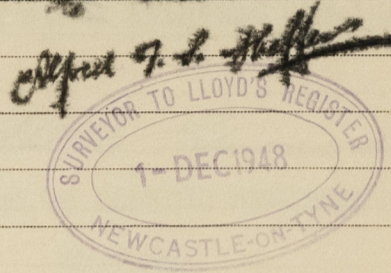 Alfred T. S.
SURVEYOR TO LLOYD'S REGISTER
1- DEC 1948
NEWCASTLE-ON-TYNE